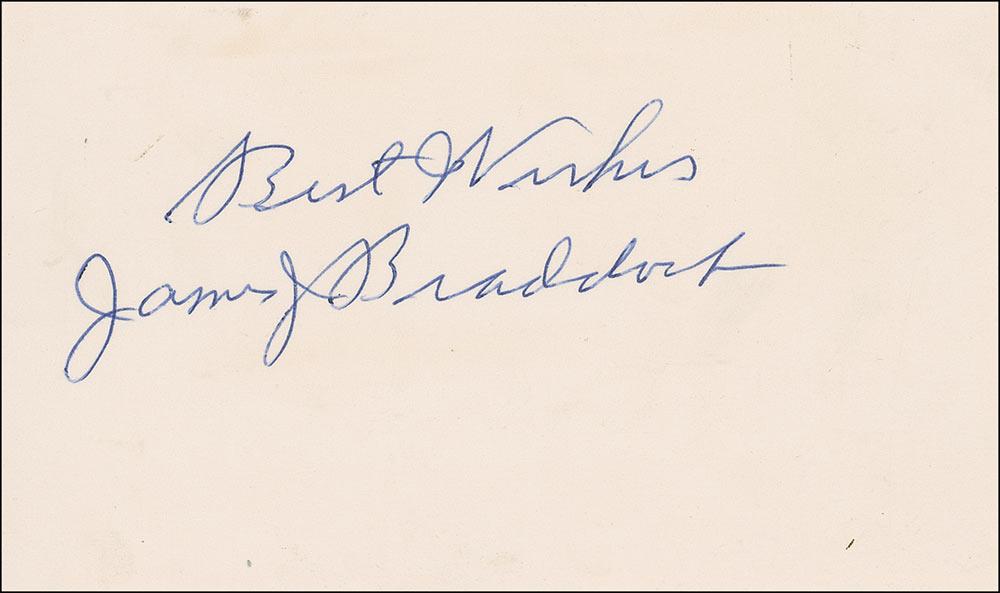 Best Wishes
James J Braddock